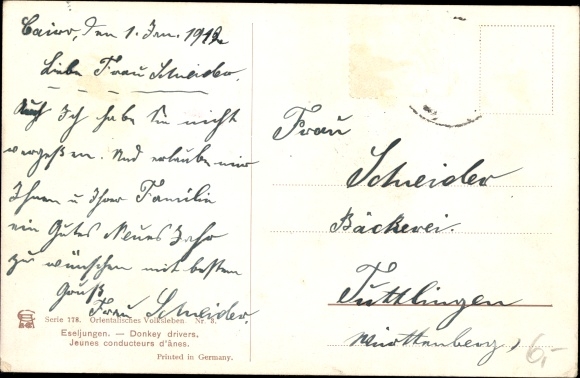 Cairo, den 1. Jan. 1912
Liebe Frau Schneider.
Auch Ich habe Sie nicht
vergeßen. Und erlaube mir
Ihnen u Ihrer Familie
ein Gutes Neues Jahr
zu wünschen mit besten
Gruß
Frau Schneider.
Serie 778. Orientalisches Volksleben Nr. 5.
Eseljungen. — Donkey drivers.
Jeunes conducteurs d'ânes.
Printed in Germany.
Frau
Schneider
Bäckerei.
Tuttlingen
Württemberg,
6,-